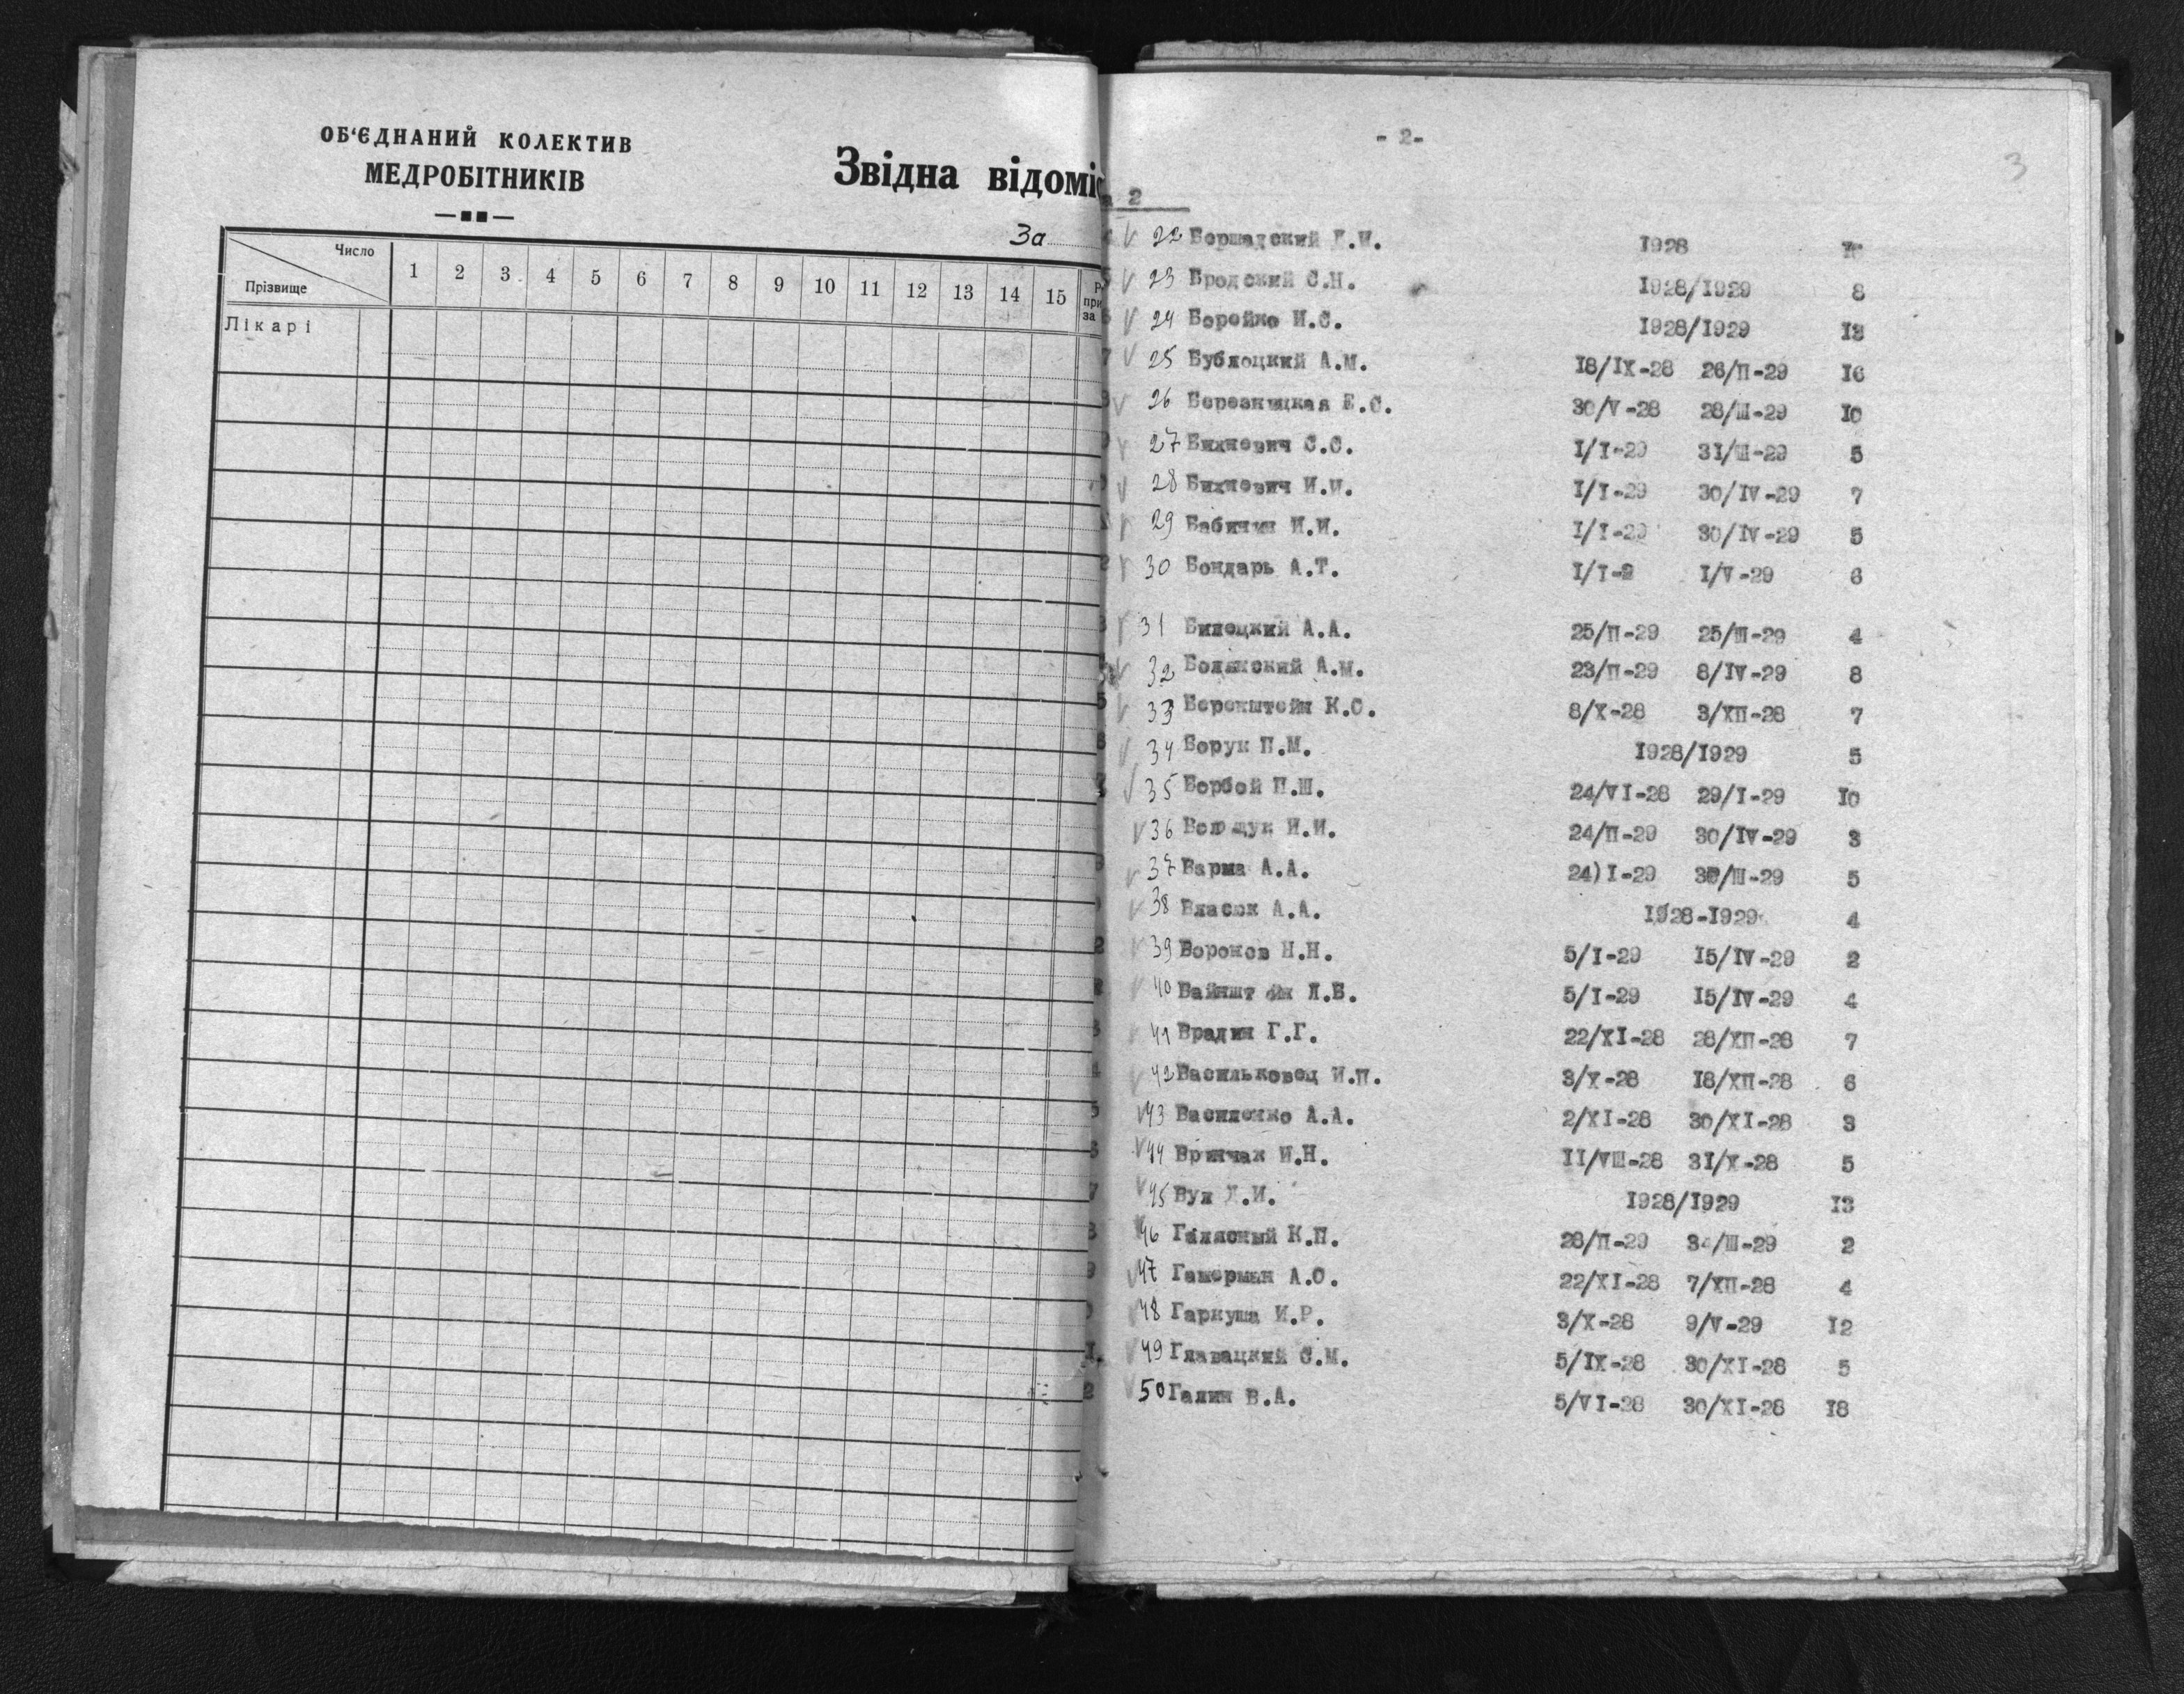 ОБ'ЄДНАНИЙ КОЛЕКТИВ
МЕДРОБІТНИКІВ
Звідна відоміс
За
Число
Прізвище
1 2 3 4 5 6 7 8 9 10 11 12 13 14 15
при
за
Лікарі
- 2-
3
2
22 Бершадский И. 1928
23 Бродский С.Н. 1928/1929 8
24 Борейко И.С. 1928/1929 13
25 Бублоцкий А.М. 18/IX-28 26/II-29 16
26 Березницкая Е.С. 30/V-28 28/III-29 10
27 Бихневич С.С. I/I-29 31/III-29 5
28 Бихневич И.И. I/I-29 30/IV-29 7
29 Бабичин И.И. I/I-29 30/IV-29 5
30 Бондарь А.Т. I/I-2 I/V-29 6
31 Билецкий А.А. 25/II-29 25/III-29 4
32 Болжский А.М. 23/II-29 8/IV-29 8
33 Беренштейн К.С. 8/X-28 3/XII-28 7
34 Борук П.М. 1928/1929 5
35 Бербой П.Ш. 24/VI-28 29/I-29 10
36 И.И. 24/II-29 30/IV-29 3
37 Варма А.А. 24)I-29 /III-29 5
38 Власюк А.А. 1928-1929 4
39 Воронов Н.Н. 5/I-29 15/IV-29 2
40 Вайншт йн Л.Б. 5/I-29 15/IV-29 4
41 Врадин Г.Г. 22/XI-28 28/XII-28 7
42 Васильковец И.П. 3/X-28 18/XII-28 6
43 Василенко А.А. 2/XI-28 30/XI-28 3
44 Вринчак И.Н. II/VIII-28 31/X-28 5
45 Вул И. 1928/1929 13
46 Галясный К.П. 28/II-29 /III-29 2
47 Гамерман А.О. 22/XI-28 7/XII-28 4
48 Гаркуша И.Р. 3/X-28 9/V-29 12
49 Главацкий С.М. 5/IX-28 30/XI-28 5
50 Галин В.А. 5/VI-28 30/XI-28 18